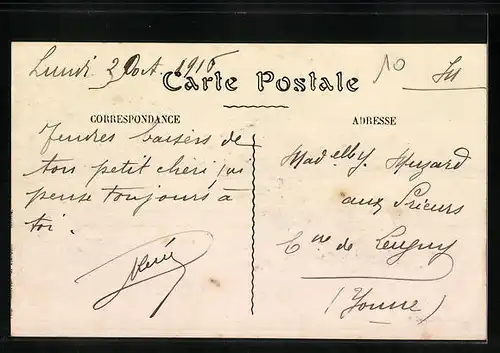 Lundi 2 Oct. 1916
10
Carte Postale
CORRESPONDANCE
Tendres baisers de
ton petit cheri qui
pense toujours à
toi.
René
ADRESSE
Huzard
aux Prieurs
Cne de Leugny
(Yonne)